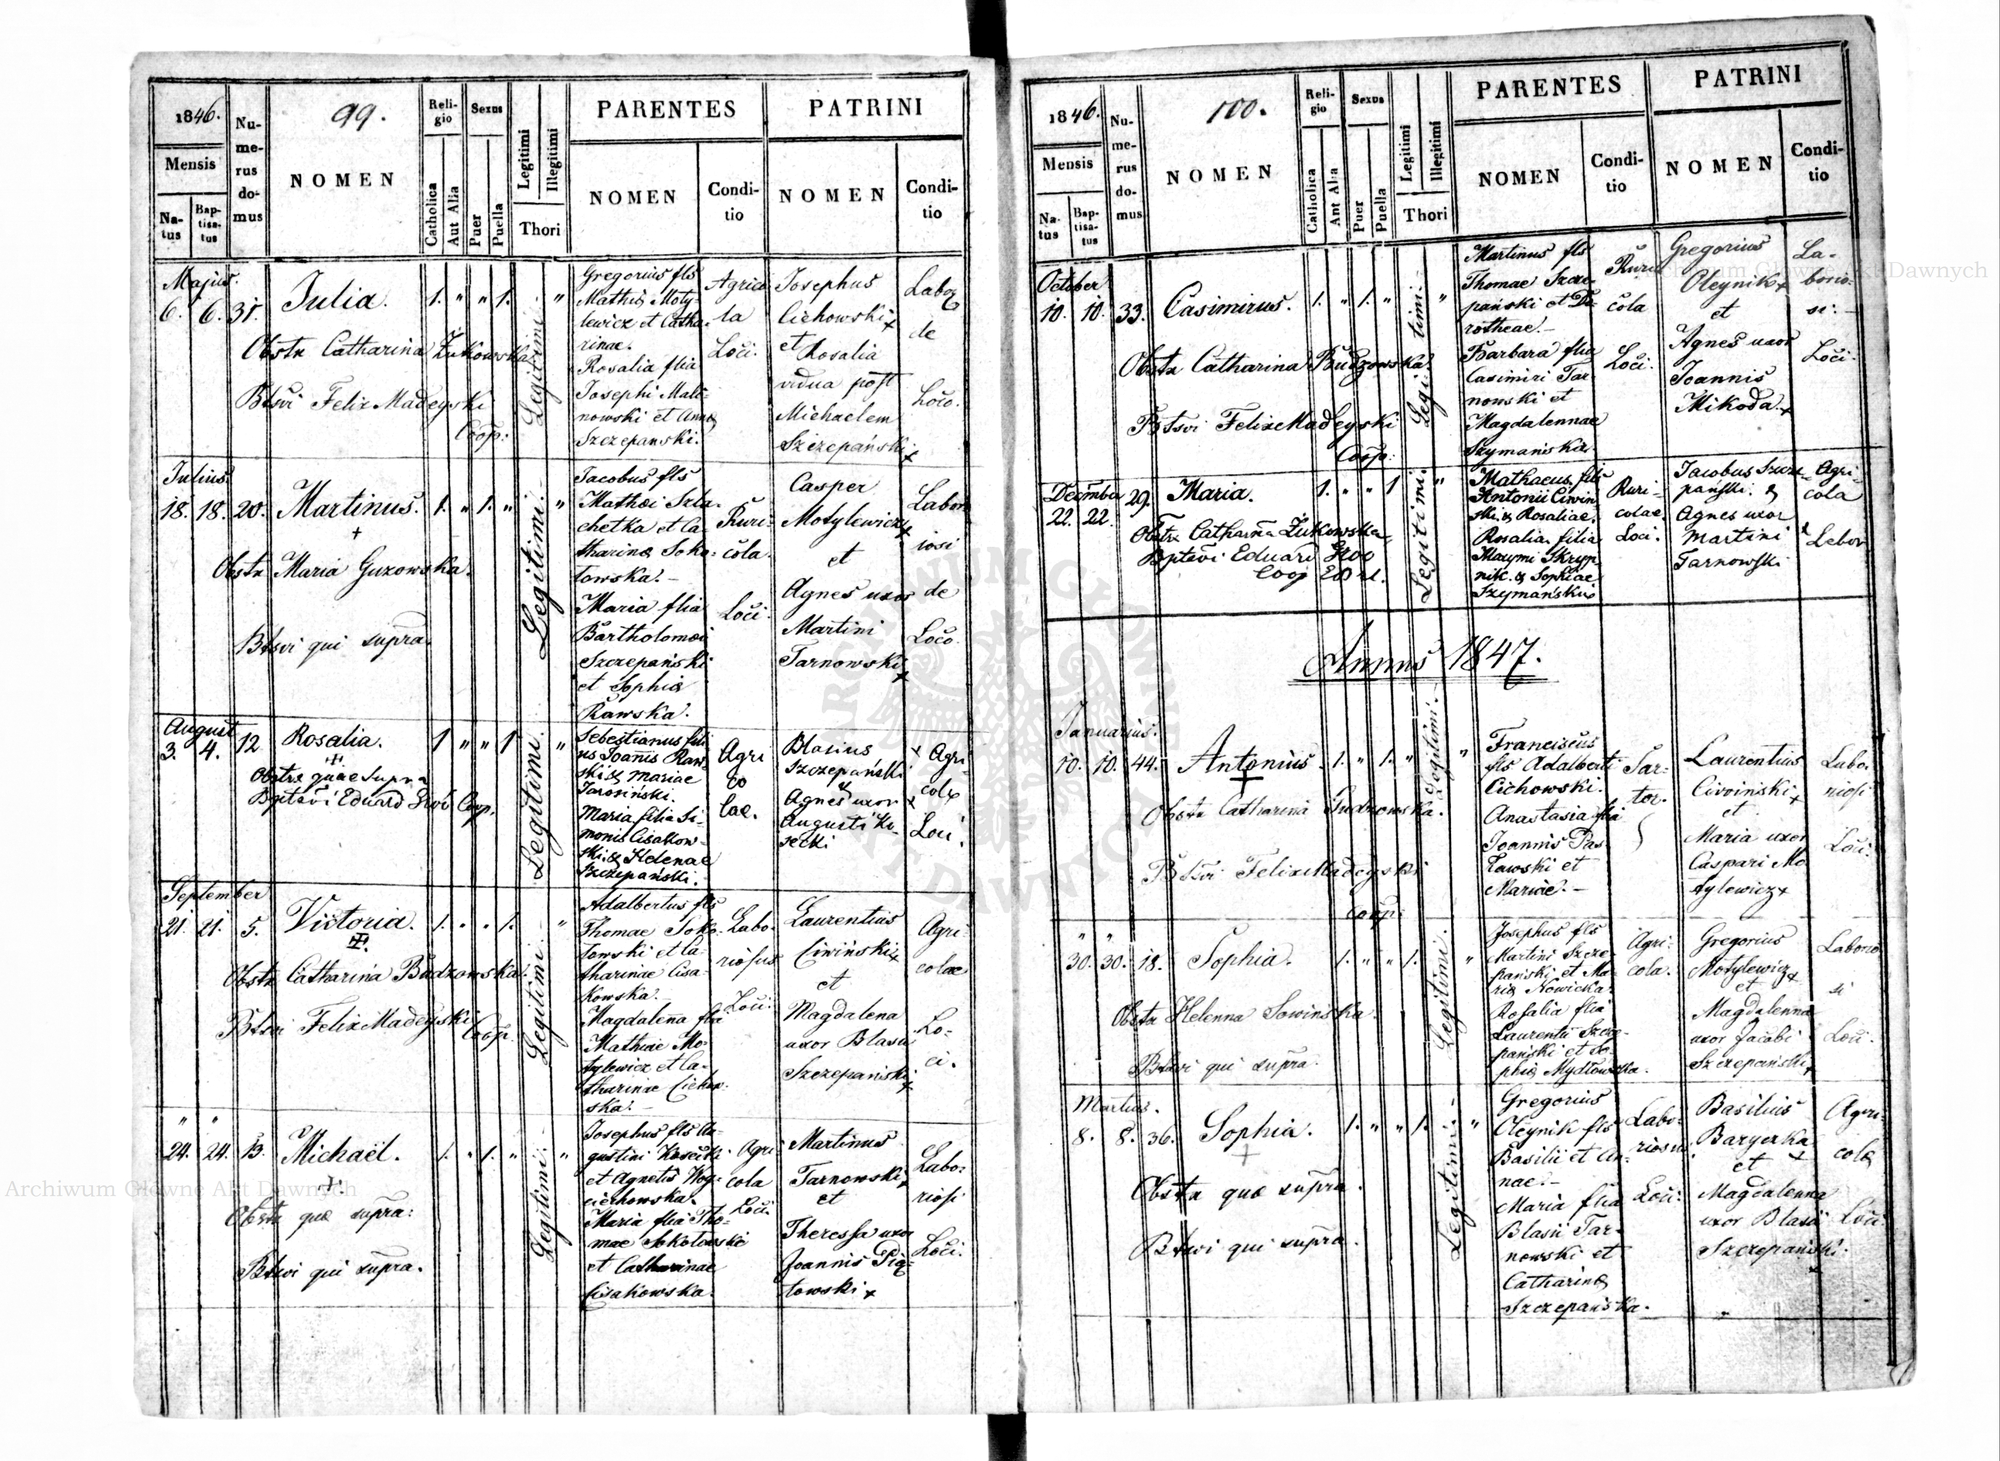 1846.
99.
Numerus domus
Religio
Sexus
Legitimi
Illegitimi
PARENTES
PATRINI
Mensis
NOMEN
Catholica
Aut Alia
Puer
Puella
Thori
NOMEN
Conditio
NOMEN
Conditio
Natus
Baptisatus
Majus.
6. 6. 31. Julia. 1. " " 1. "
Obstx Catharina Żukowska
Btsvi Felix Madeyski
Coop:
Legitimi.
Gregorius fls
Mathiæ Moty-
lewicz et Catha-
rinae.
Rosalia flia
Josephi Mali-
nowski et Annæ
Szczepanski.
Agrico
la
Loci.
Josephus
Cichowski +
et Rosalia
vidua post
Michaelem
Szczepański +
Labor
de
Loco.
Julius.
18. 18. 20. Martinus. 1. " 1. " "
+
Obstx Maria Guzowska.
Btsvi qui supra.
Legitimi.
Jacobus fls
Mathæi Szla-
chetka et Ca-
tharinæ Soko-
łowska.
Maria flia
Bartholomæi
Szczepański
et Sophiæ
Rawska.
Ruri-
cola.
Loci.
Casper
Motylewicz +
et
Agnes uxor
Martini
Tarnowski +
Labor
iosi
de
Loco.
August
3. 4. 12 Rosalia. 1 " " 1 "
Obstx quae Supra
Bptsvi Eduard Coop.
Legitimi.
Sebestianus fili
us Joanis Raw-
ski & Mariae
Tarosiński.
Maria filia Si-
monis Cisakow-
ski & Helenae
Szczepański.
Agri
co
lae.
Blasius
Szczepański
&
Agnes uxor
Augusti Ko-
secki
Agri-
colæ
Loci.
September
21. 21. 5. Victoria. 1. " " 1. "
Obstx Catharina Budzowska.
Btsvi Felix Madeyski
Coop.
Legitimi.
Adalbertus fls
Thomae Soko-
łowski et Ca-
tharinae Cisa-
kowska.
Magdalena flia
Mathiae Mo-
tylewicz et Ca-
tharinae Cichow-
ska.
Labo-
riosus
Loci.
Laurentius
Ciwiński +
et
Magdalena
uxor Blasii
Szczepański +
Agri-
colae
Lo-
ci.
" "
24. 24. 13. Michaël. 1. " 1. " "
+
Obstx quæ supra.
Btsvi qui supra.
Legitimi.
Josephus fls Au-
gustini Kosecki
et Agnetis Woy-
ciechowska.
Maria flia Tho-
mae Sokołowski
et Catharinae
Cisakowska.
Agri
cola
Loci.
Martinus
Tarnowski +
et
Theressa uxor
Joannis Pią-
towski +
Labo-
riosi
Loci.
1846.
100.
Numerus domus
Religio
Sexus
Legitimi
Illegitimi
PARENTES
PATRINI
Mensis
NOMEN
Catholica
Aut Alia
Puer
Puella
Thori
NOMEN
Conditio
NOMEN
Conditio
Natus
Baptisatus
October
10. 10. 33. Casimirus. 1. " 1. " "
Obstx Catharina Budzowska.
Btsvi Felix Madeyski
Coop.
Legitimi.
Martinus fls
Thomae Szcze-
pański et Do-
rotheae.
Barbara flia
Casimiri Tar-
nowski et
Magdalennae
Szymańska.
Ruri
cola
Loci.
Gregorius
Oleynik +
et
Agnes uxor
Joannis
Mikoda. +
La-
borio-
si.
Loci.
Decemba
22. 22. 29. Maria. 1. " " 1 "
Obstx Catharina Żukowska
Bptsvi Eduard
Coop
Legitimi.
Mathaeus fils
Antonii Ciwin
ski & Rosaliae.
Rosalia filia
Maxymi Skryp-
nik & Sophiae
Szymańska
Ruri-
colae.
Loci.
Jacobus Szcze-
pański. &
Agnes uxor
Martini
Tarnowski
Agri-
cola
Labor
Annus 1847.
Januarius.
10. 10. 44. Antonius. 1. " 1. " "
Obstx Catharina Budzowska.
Btsvi Felix Madeyski
Coop.
Legitimi.
Franciscus
fls Adalberti
Cichowski.
Anastasia flia
Joannis Pas-
ławski et
Mariae.
Sar-
tor.
Laurentius
Ciwinski +
et
Maria uxor
Caspari Mo-
tylewicz +
Labo-
riosi
Loci.
" "
30. 30. 18. Sophia. 1. " " 1. "
Obstx Helenna Sowińska.
Btsvi qui supra.
Legitimi.
Josephus fls
Martini Szcze-
pański et Ma-
riæ Nowicka.
Rosalia flia
Laurentii Szcze-
pański et So-
phiæ Mydłowska.
Agri-
cola.
Gregorius
Motylewicz +
et
Magdalenna
uxor Jacobi
Szczepański +
Laborio
si
Loci.
Martius.
8. 8. 36. Sophia. 1. " " 1. "
Obstx quæ supra.
Btsvi qui supra.
Legitimi.
Gregorius
Oleynik fls
Basilii et An-
nae.
Maria flia
Blasii Tar-
nowski et
Catharinæ
Szczepańska.
Labo-
riosus.
Loci.
Basilius
Baryerka
et +
Magdalenna
uxor Blasii
Szczepański.
Agri-
colæ
Loci.
Archiwum Główne Akt Dawnych
Archiwum Główne Akt Dawnych
ARCHIWUM GŁÓWNE AKT DAWNYCH